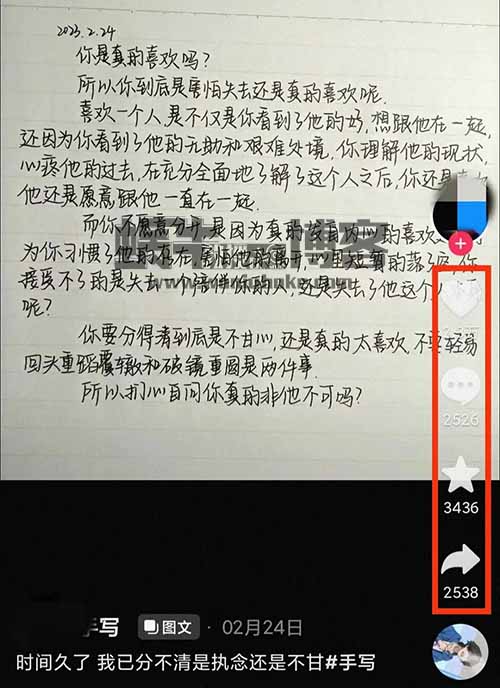 2023.2.24
你是真的喜欢吗?
所以你到底是害怕失去还是真的喜欢呢.
喜欢一个人,是不仅是你看到了他的好,想跟他在一起,
还因为你看到了他的无助和艰难处境,你理解他的现状,
心疼他的过去,在充分全面地了解了这个人之后,你还是
他还是愿意跟他一直在一起.
而你不愿意分开是因为真的发自内心的喜欢
为你习惯了他的存在,害怕他的离开,心里短暂的落
接受不了的是失去一个陪伴你的人,还是失去了他这个人
呢?
你要分得清到底是不甘心,还是真的太喜欢,不要轻易
回头重蹈覆辙和破镜重圆是两件事.
所以,扪心自问你真的非他不可吗?
2526
3436
2538
手写
图文 · 02月24日
时间久了 我已分不清是执念还是不甘#手写